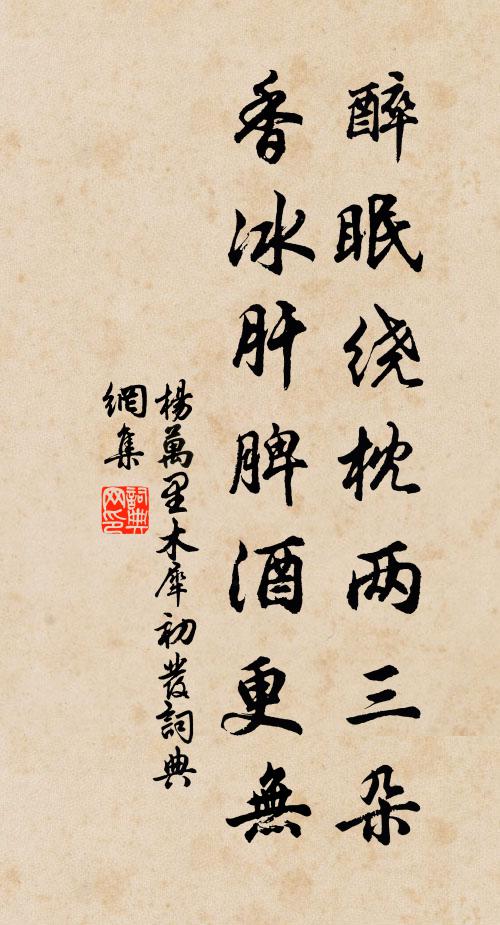 醉眠绕枕两三朵
香冰肝脾酒更無
楊萬里木犀初發詞典
網集
詞典网印